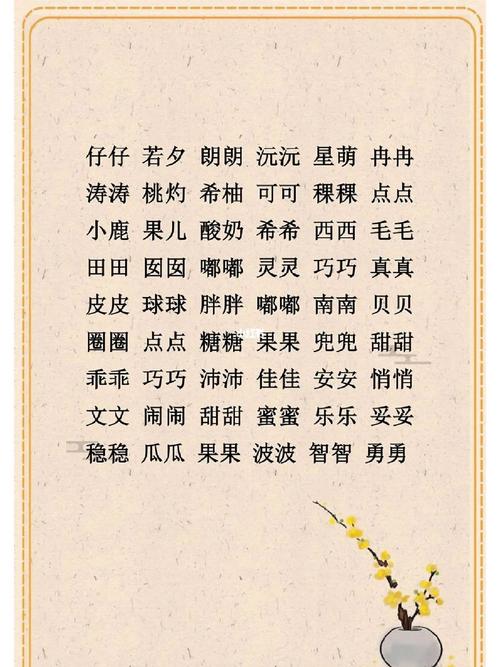 仔仔 若夕 朗朗 沅沅 星萌 冉冉
涛涛 桃灼 希柚 可可 稞稞 点点
小鹿 果儿 酸奶 希希 西西 毛毛
田田 囡囡 嘟嘟 灵灵 巧巧 真真
皮皮 球球 胖胖 嘟嘟 南南 贝贝
圈圈 点点 糖糖 果果 兜兜 甜甜
乖乖 巧巧 沛沛 佳佳 安安 悄悄
文文 闹闹 甜甜 蜜蜜 乐乐 妥妥
稳稳 瓜瓜 果果 波波 智智 勇勇